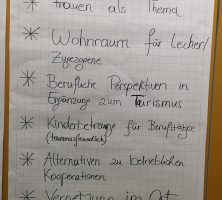 * Frauen als Thema
* Wohnraum für Lecher/
Zugezogene
* Berufliche Perspektiven in
Ergänzung zum Tourismus
* Kinderbetreuung für Berufstätige
* Alternativen zu betrieblichen
Kooperationen
* Vernetzung im Ort